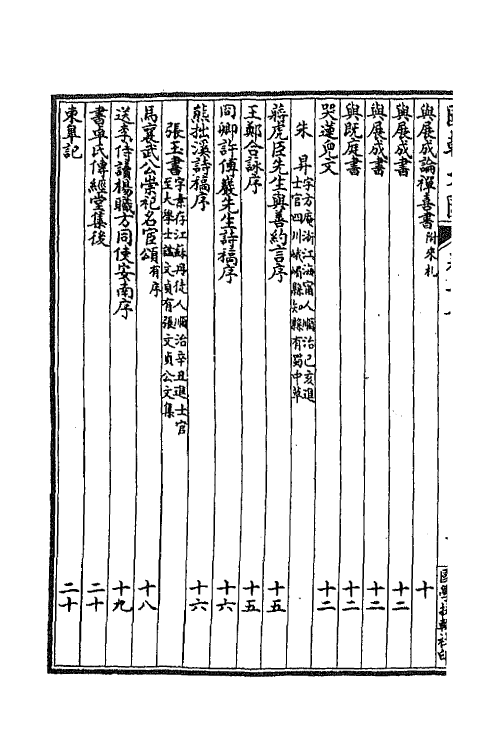 與展成論禪喜書附來札 十
與展成書 十二
與展成書 十二
與既庭書 十二
哭蓮兒文 十二
朱昇字方庵浙江海甯人順治己亥進士官四川峨嵋縣知縣有蜀中草
蔣虎臣先生與善約言序 十五
王鄭合詠序 十五
同卿許傅巖先生詩稿序 十六
熊拙溪詩稿序 十六
張玉書字素存江蘇丹徒人順治辛丑進士官至大學士諡文貞有張文貞公文集
馬襄武公崇祀名宦頌有序 十八
送李侍讀楊職方同使安南序 十九
書卓氏傳經堂集後 二十
東皐記 二十